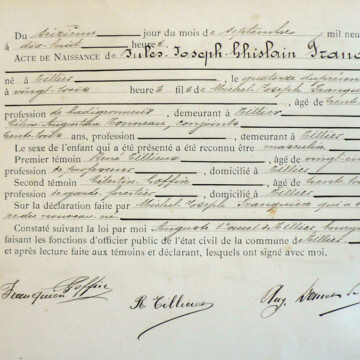 Du seizième jour du mois de septembre mil neu
À dix-huit heures.
ACTE DE NAISSANCE de Jules-Joseph-Ghislain Franq
né à Tillier, le quatorze du présent
à vingt-trois heures, fils de Michel-Joseph Franquien
profession de badigeonneur, demeurant à Tillier
Augustine conjoints
trente-trois ans, profession demeurant à Tillier
Le sexe de l'enfant qui a été présenté a été reconnu être masculin.
Premier témoin René Tillieux, âgé de vingt-cin
profession de, domicilié à Tillier
Second témoin Célestin Goffin, âgé de trente
profession de garde forestier, domicilié à Tillier
Sur la déclaration faite par Michel-Joseph Franquien qui a
Constaté suivant la loi par moi Auguste de Tillier, bourg
faisant les fonctions d'officier public de l'état civil de la commune de Tillier
et après lecture faite aux témoins et déclarant, lesquels ont signé avec moi.
Franquien Goffin
R Tillieux
Aug.